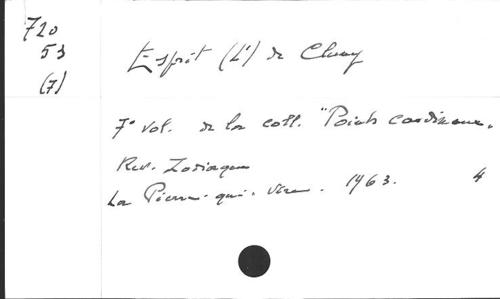 720
53
(7)
Esprit (L') de Cluny
7e vol. de la coll. "Points cardinaux.
Rev. Zodiaque
La Pierre-qui-vire. 1963. 4